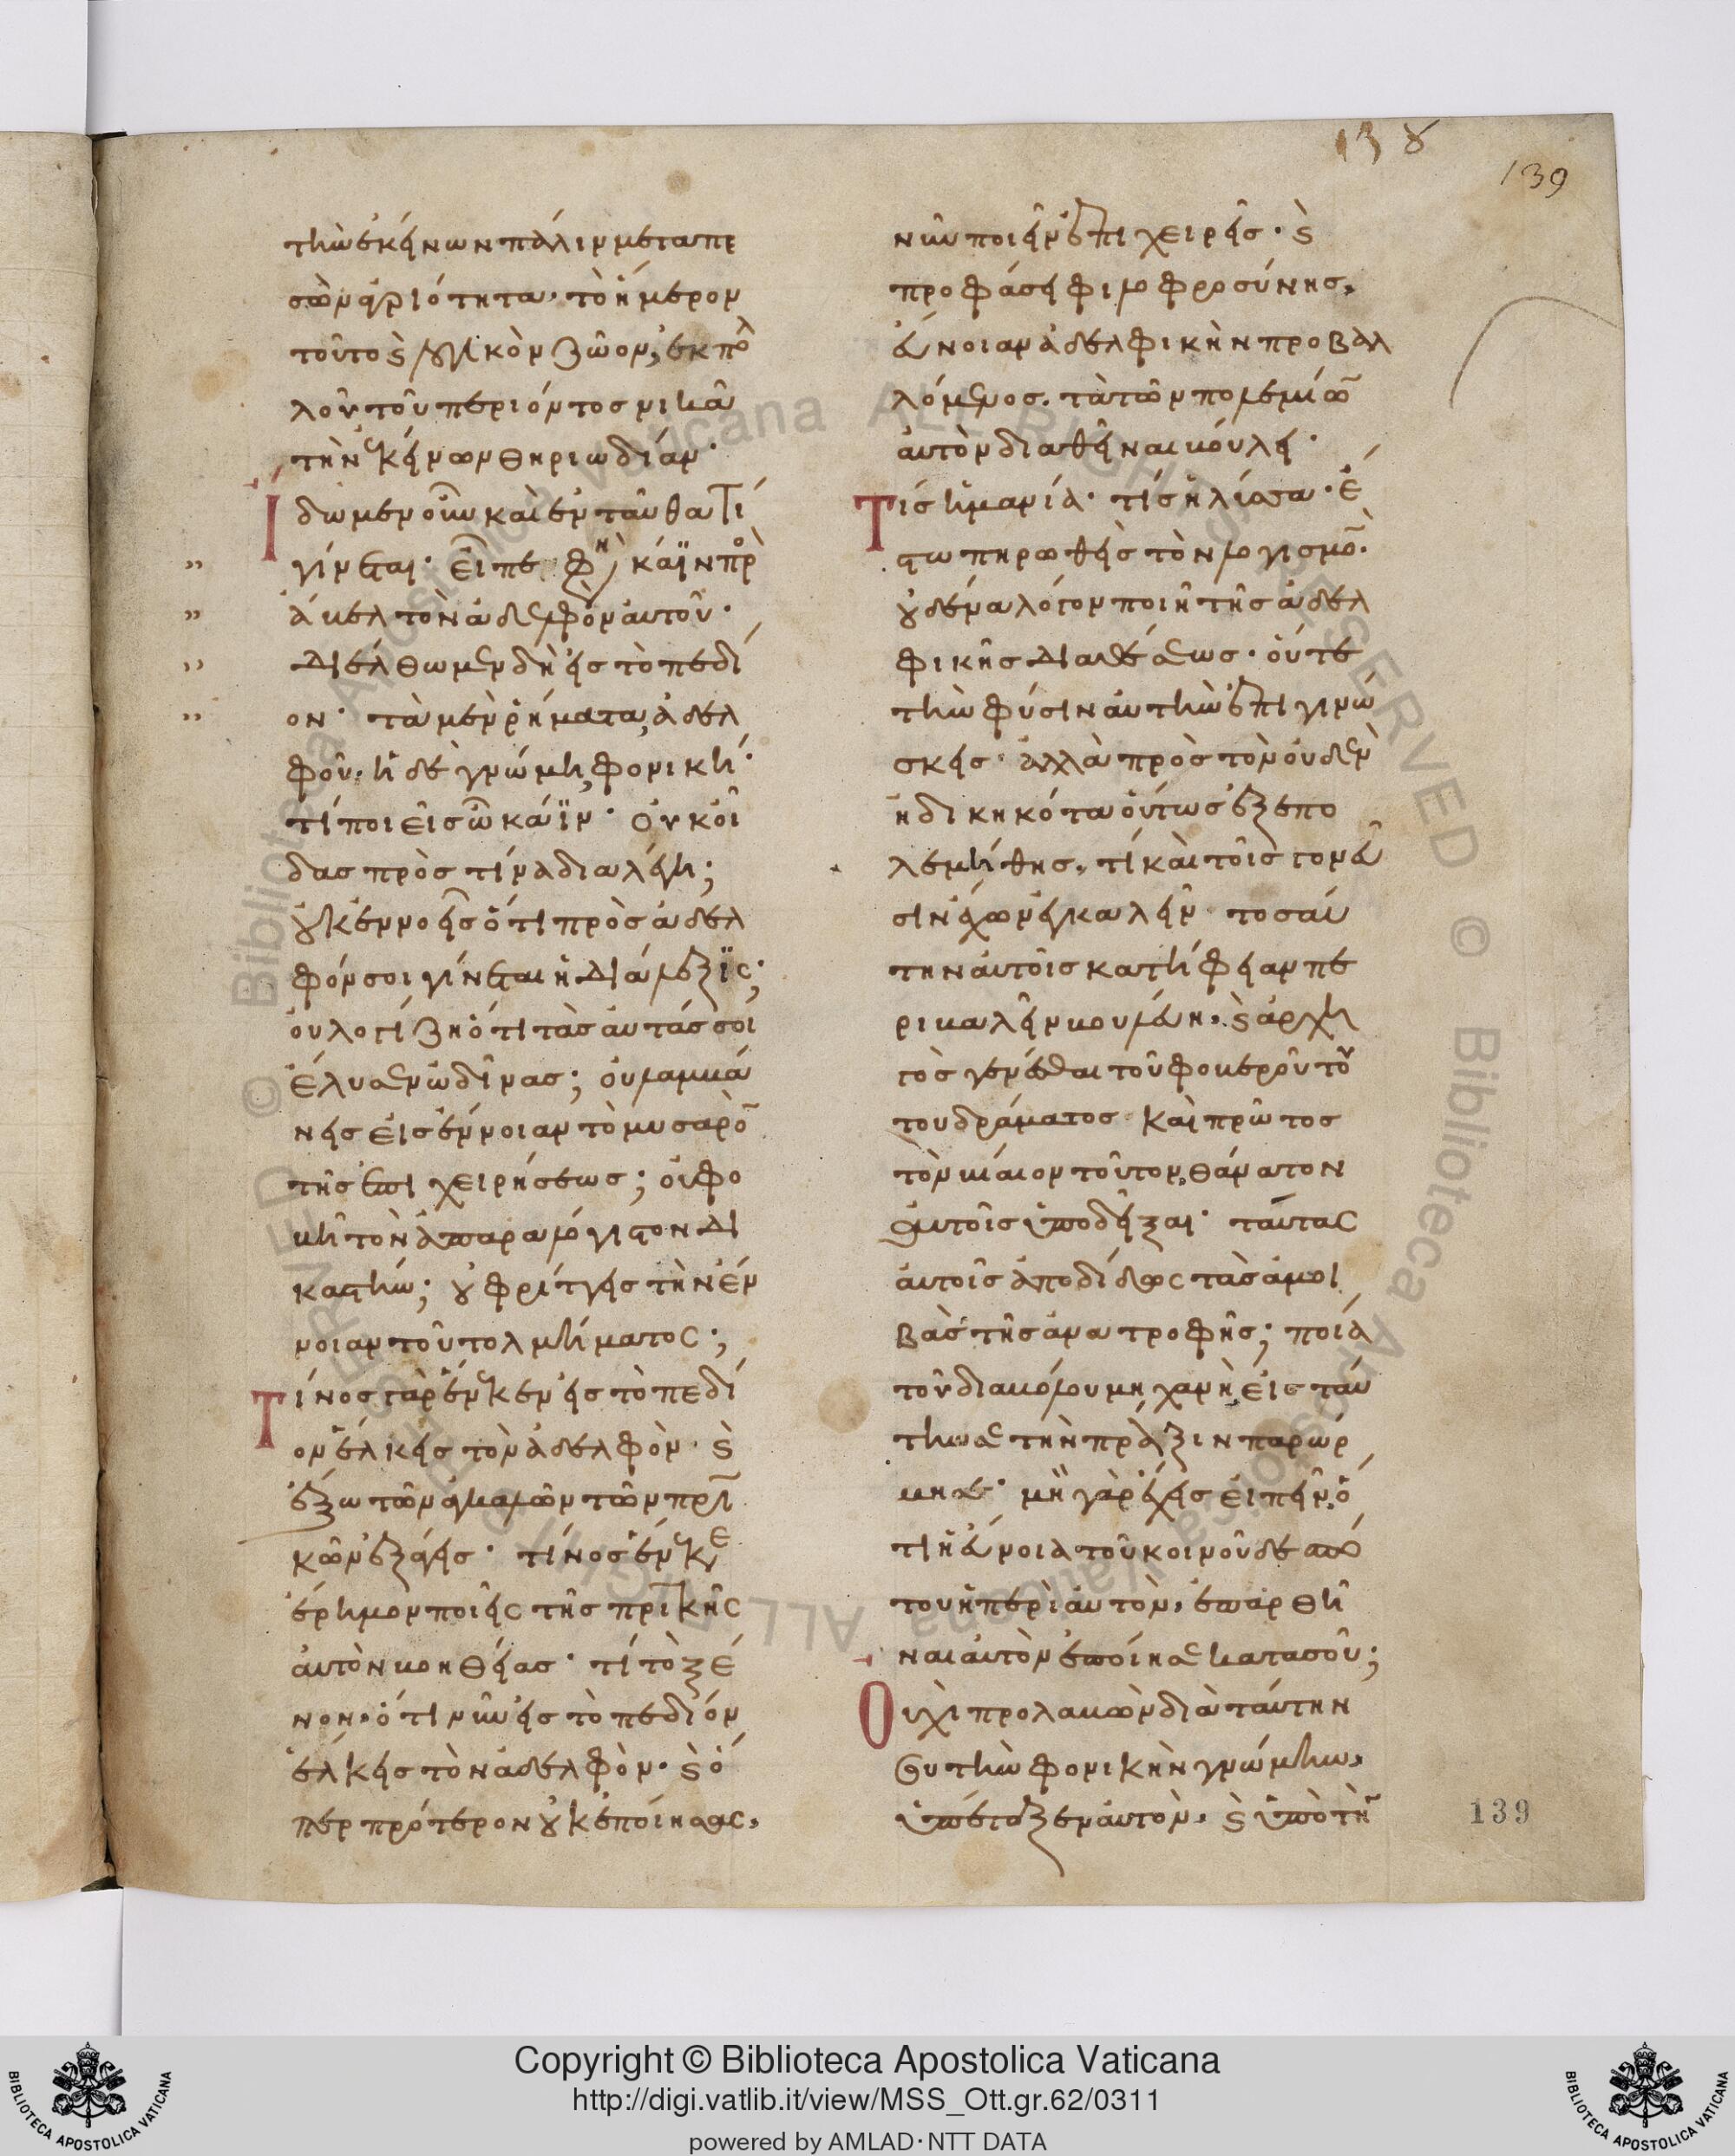 138
139
τὴν ἐκείνων πάλιν μεταπε
σὼν ἀγριότητα· τὸ ἥμερον
τοῦτο ϗ λογικὸν ζῶον, ἐκ πολ
λοῦ τοῦ περιόντος νικᾶ
τὴν ἐκείνων θηριωδίαν·
Ἴδωμεν οὖν καὶ ἐνταῦθα τί
γίνεται· εἶπε φη κάϊν πρὸς
ἄβελ τὸν ἀδελφὸν αὐτοῦ·
διέλθωμεν δὴ εἰς τὸ πεδί
ον· τὰ μὲν ῥήματα, ἀδελ
φοῦ· ἡ δὲ γνώμη, φονική·
τί ποιεῖς ὦ κάϊν· οὐκ οἶ
δας πρὸς τίνα διαλέγη;
οὐκ ἐννοεῖς ὅτι πρὸς ἀδελ
φόν σοι γίνεται ἡ διάλεξϊς;
οὐ λογίζη ὅτι τὰς αὐτάς σοι
ἔλυσεν ὠδῖνας; οὐ λαμβά
νεις εἰς ἔννοιαν τὸ μυσαρὸν
τῆς ἐπιχειρήσεως; οὐ φο
βῆ τὸν ἀπαραλόγιστον δι
καστήν; οὐ φρίττεις τὴν ἔν
νοιαν τοῦ τολμήματος;
Τίνος γὰρ ἕνεκεν εἰς τὸ πεδί
ον ἕλκεις τὸν ἀδελφὸν· ϗ
ἔξω τῶν ἀγκαλῶν τῶν πρι
κῶν ἐξάγεις· τίνος ἕνεκε
ἔρημον ποιεῖς τῆς πρικῆς
αὐτὸν βοηθείας· τί τὸ ξέ
νον· ὅτι νῦν εἰς τὸ πεδίον
ἕλκεις τὸν ἀδελφὸν· ϗ ὅ
περ πρότερον οὐκ ἐποίησας,
νῦν ποιεῖν ἐπιχειρεῖς· ϗ
προφάσει φιλοφροσύνης,
εὔνοιαν ἀδελφικὴν προβαλ
λόμενος. τὰ τῶν πολεμίων
αὐτὸν διαθεῖναι βούλει·
Τίς ἡ μανία· τίς ἡ λύσσα· ἔ
στω πηρωθεὶς τὸν λογισμὸν·
οὐδένα λόγον ποιῆ τῆς ἀδελ
φικῆς διαθέσεως· οὔτε
τὴν φύσιν αὐτὴν ἐπιγινώ
σκεις· ἀλλὰ πρὸς τὸν οὐδὲν
ἠδικηκότα οὕτως ἐξεπο
λεμήθης, τί καὶ τοῖς γονεῦ
σιν ἔχων ἐγκαλεῖν τοσαύ
την αὐτοῖς κατήφειαν πε
ριβαλεῖν βουλόμενη, ϗ ἀρχη
γὸς γενέσθαι τοῦ φοβεροῦ τού
του δράματος καὶ πρῶτος
τὸν βίαιον τοῦτον θάνατον
αὐτοῖς ὑποδεῖξαι· ταύτας
αὐτοῖς ἀποδίδως τὰς ἀμοι
βὰς τῆς ἀνατροφῆς; ποία
τοῦ διαβόλου μηχανὴ εἰς ταύ
την σε τὴν πρᾶξιν παρώρ
μησε· μὴ γὰρ ἔχεις εἰπεῖν, ὅ
τι ἡ εὔνοια τοῦ κοινοῦ δεσπό
του ἡ περὶ αὐτὸν, ἐπαρθῆ
ναι αὐτὸν ἐποίησε κατὰ σοῦ;
Οὐχὶ προλαβὼν διὰ ταύτην
σου τὴν φονικὴν γνώμην,
ὑπέταξεν αὐτὸν, ϗ ὑπὸ τὴν
139
Copyright © Biblioteca Apostolica Vaticana
http://digi.vatlib.it/view/MSS_Ott.gr.62/0311
powered by AMLAD·NTT DATA